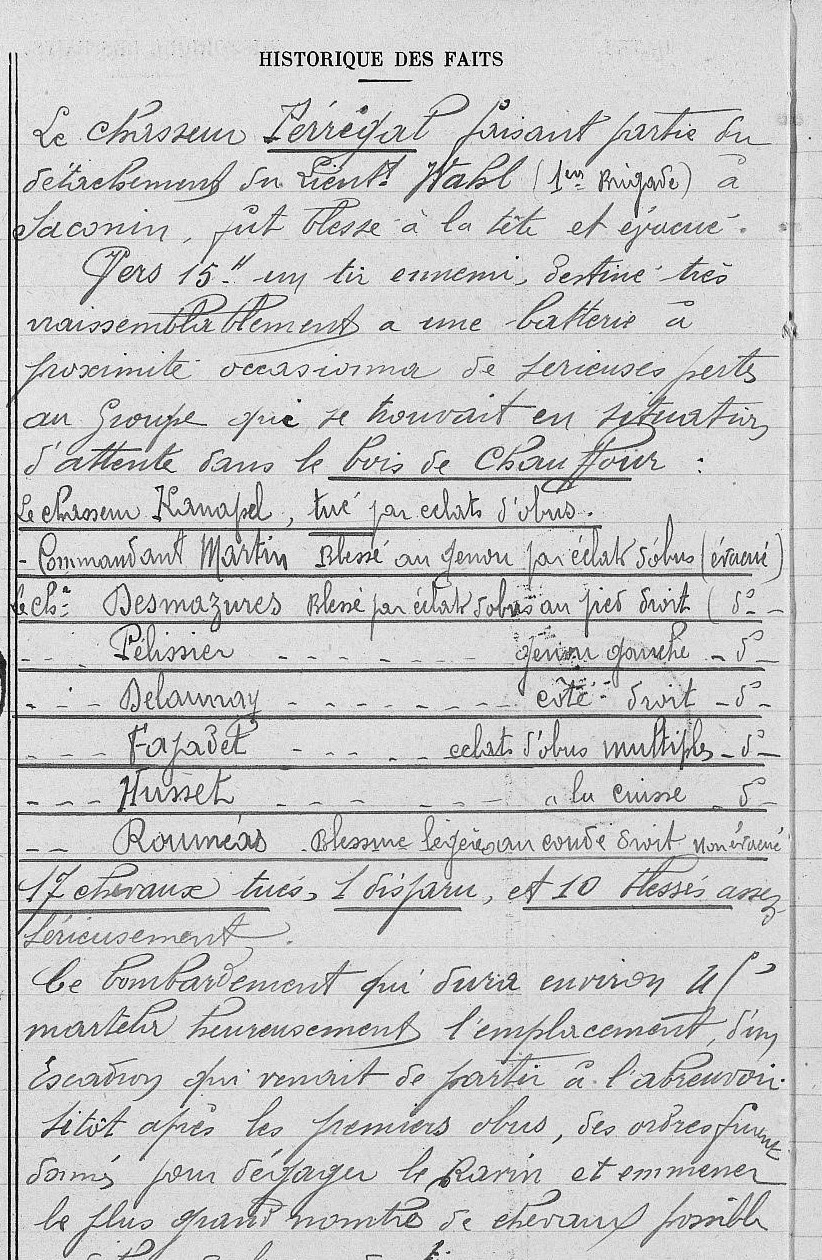 HISTORIQUE DES FAITS
Le chasseur Perrégat faisant partie du
détachement du Lieut.t Wahl (1ère Brigade) à
Saconin, fut blessé à la tête et évacué.
Vers 15.H un tir ennemi, destiné très
vraissemblablement a une batterie à
proximité occasionna de serieuses pertes
au Groupe qui se trouvait en situation
d'attente dans le bois de Chauffour :
Le chasseur Kanapel, tué par eclats d'obus.
- Commandant Martin Blessé au genou par éclat d'obus (évacué)
Le ch.r Desmazures Blessé par éclat d'obus au pied droit ( d° -
- - - Pélissier - - - - - - - genou gauche - d° -
- - - Delaunay - - - - - - - - coté droit - d° -
- - - Fajadet - - - - - eclats d'obus multiples - d° -
- - - Husset - - - - - - - " la cuisse - d° -
- - Rouméas . Blessure légère au coude droit non évacué
17 chevaux tués, 1 disparu, et 10 blessés assez
sérieusement.
Ce bombardement qui dura environ
martela heureusement l'emplacement, d'un
Escadron qui venait de partir à l'abreuvoir.
Sitôt après les premiers obus, des ordres furent
donnés pour dégager le Ravin et emmener
le plus grand nombre de chevaux possible